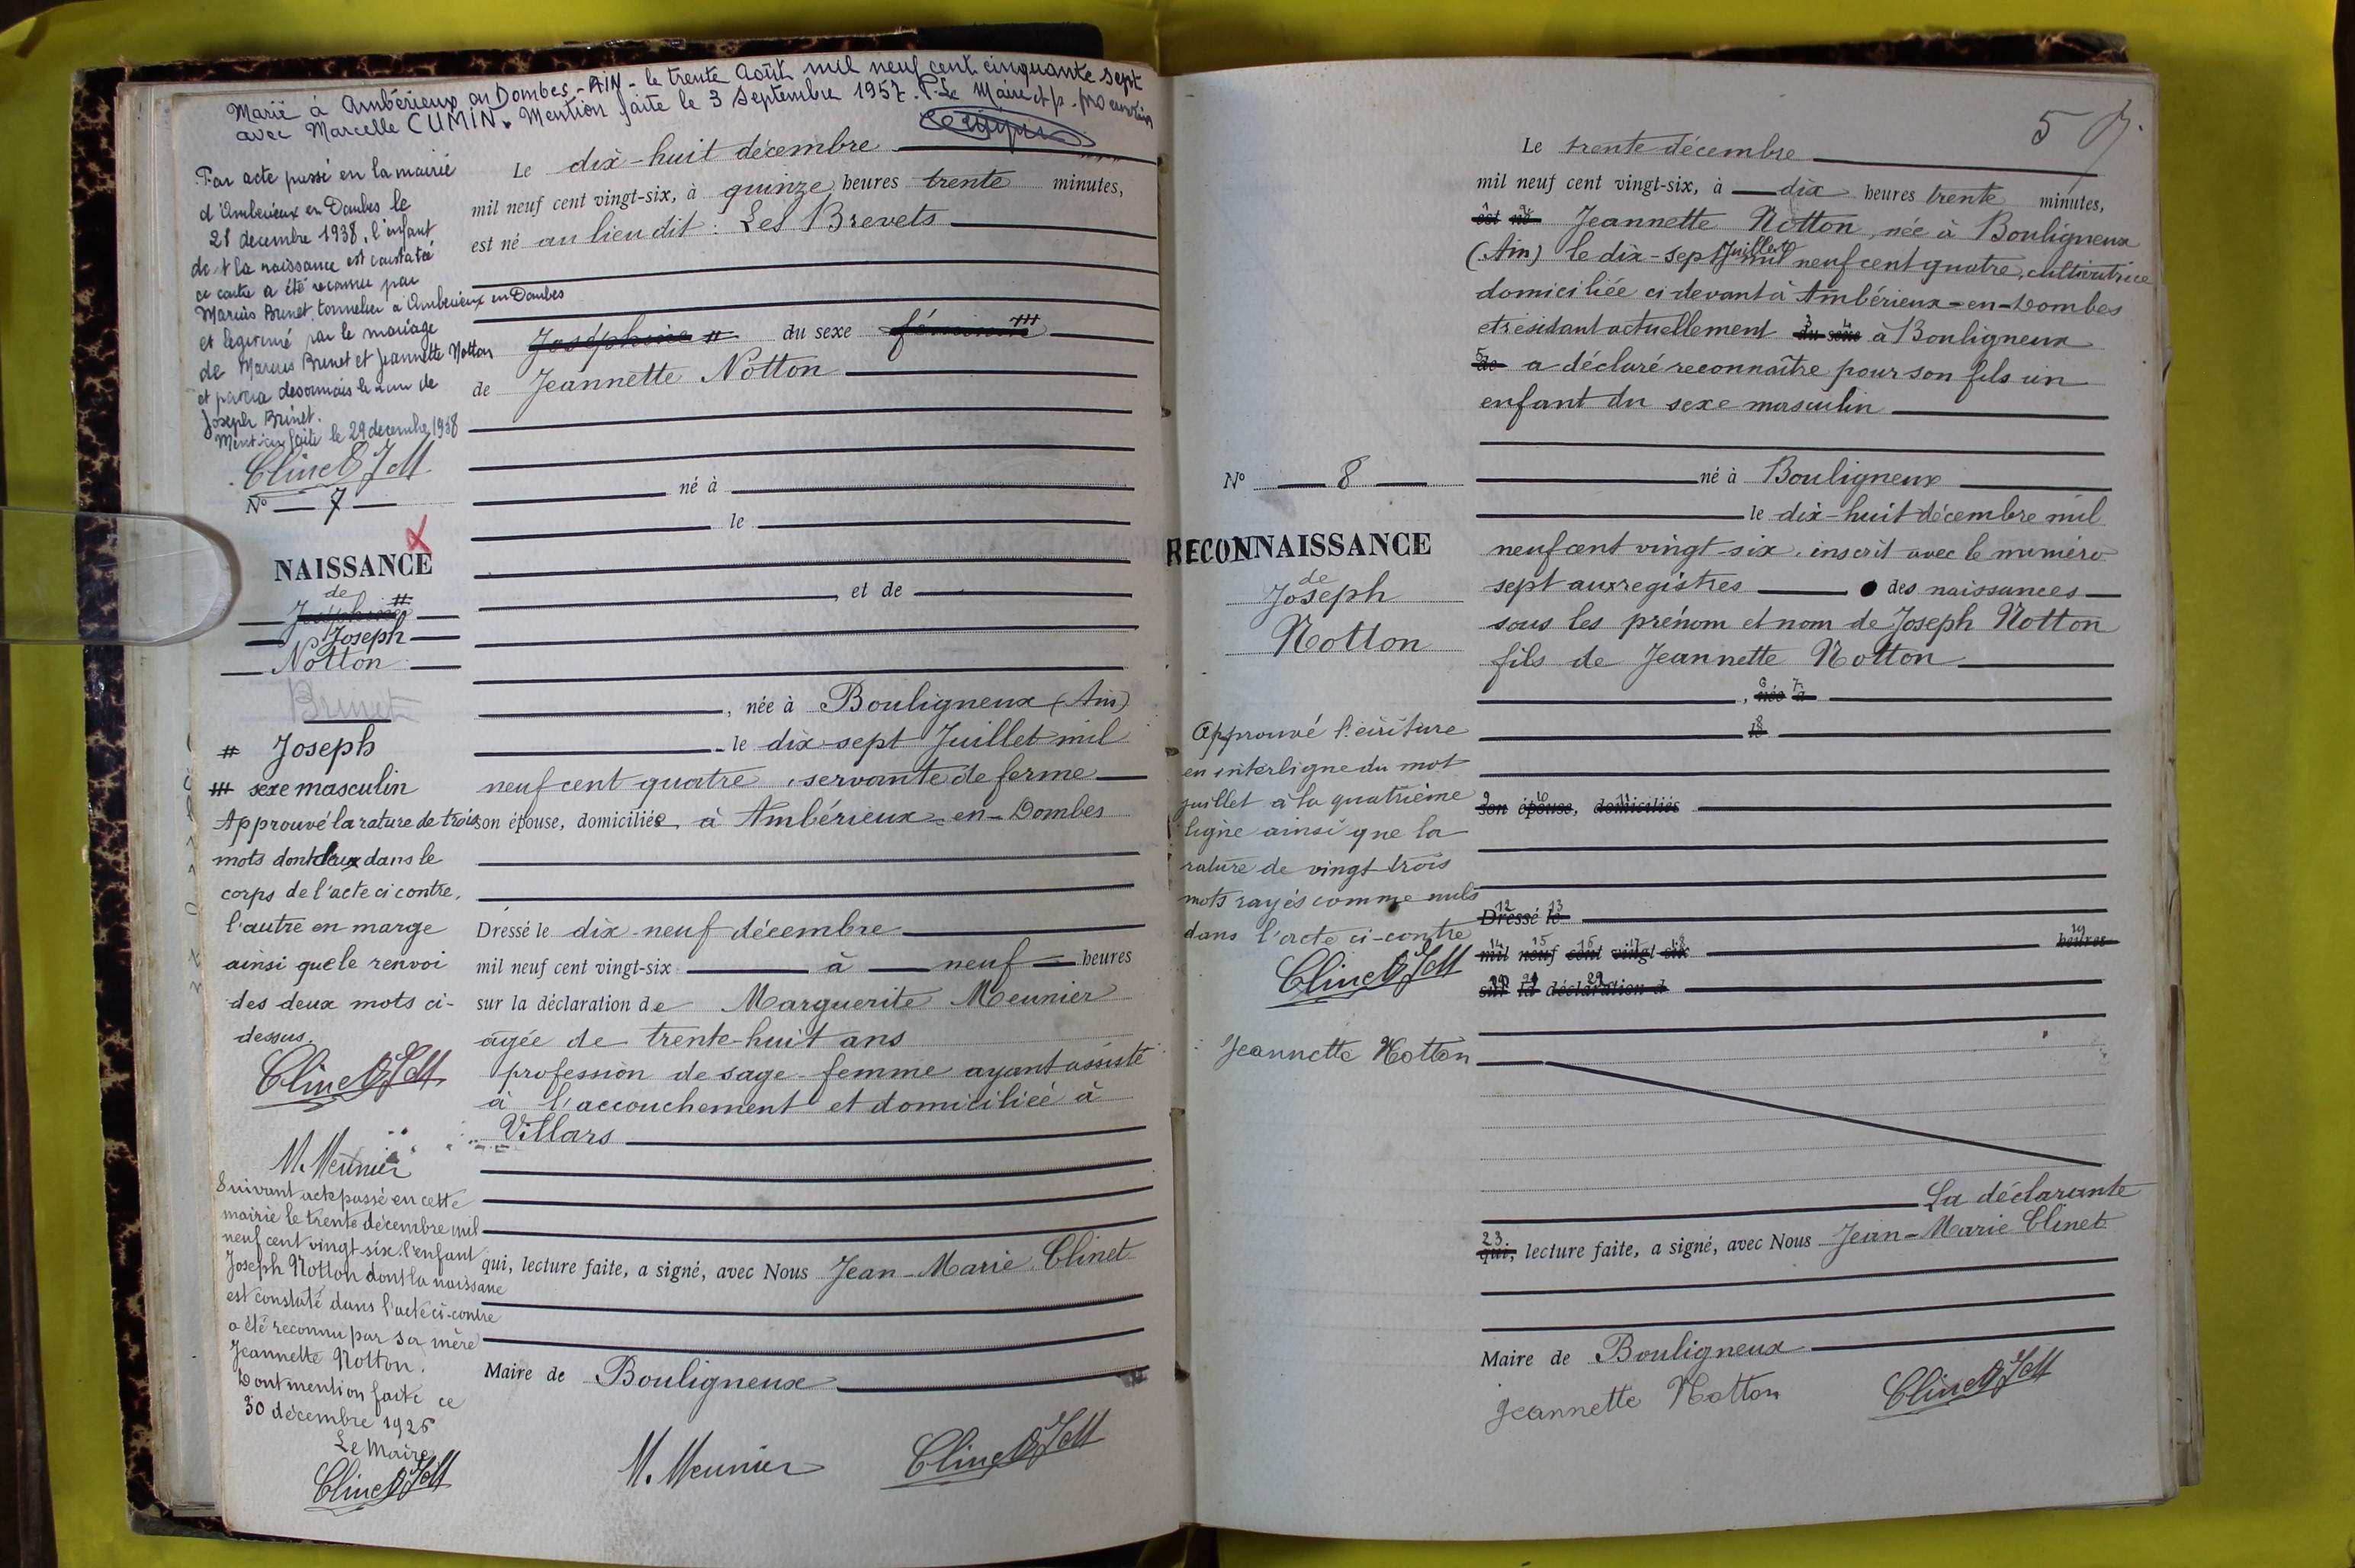 Marié à Ambérieux en Dombes - AIN - le trente Août mil neuf cent cinquante sept
avec Marcelle CUMIN. Mention faite le 3 Septembre 1957. P. Le Maire et p.
Par acte passé en la mairie
d'Amberieux en Dombes le
28 decembre 1938, l'enfant
dont la naissance est constatée
ci contre a été reconnu par
Marius Brunet, tonnelier a Amberieux en Dombes
et légitimé par le mariage
de Marius Brunet et Jeannette Notton
et portera desormais le nom de
Joseph Brunet.
Mention faite le 29 decembre 1938
Clinet JM
N° 7
NAISSANCE
de
Josephine #
Joseph
Notton
Brunet
# Joseph
## sexe masculin
Approuvé la rature de trois
mots dont deux dans le
corps de l'acte ci contre,
l'autre en marge
ainsi que le renvoi
des deux mots ci-
dessus.
Clinet JM
M. Meunier
Suivant acte passé en cette
mairie le trente décembre mil
neuf cent vingt-six. l'enfant
Joseph Notton dont la naissance
est constaté dans l'acte ci-contre
a été reconnu par sa mère
Jeannette Notton.
Dont mention faite ce
30 décembre 1926
Le Maire
Clinet JM
Le dix-huit décembre
mil neuf cent vingt-six, à quinze heures trente minutes,
est né au lieu dit : Les Brevets
Joséphine # du sexe féminin ##
de Jeannette Notton
né à
le
, et de
, née à Bouligneux (Ain)
le dix-sept Juillet mil
neuf cent quatre, servante de ferme
son épouse, domiciliée, à Ambérieux-en-Dombes
Dressé le dix-neuf décembre
mil neuf cent vingt-six à neuf heures
sur la déclaration de Marguerite Meunier
agée de trente-huit ans
profession de sage-femme ayant assisté
à l'accouchement et domiciliée à
Villars
qui, lecture faite, a signé, avec Nous Jean-Marie Clinet
Maire de Bouligneux
M. Meunier Clinet JM
5
N° 8
RECONNAISSANCE
de
Joseph
Notton
Approuvé l'écriture
en interligne du mot
juillet à la quatrième
ligne ainsi que la
rature de vingt-trois
mots rayés comme nuls
dans l'acte ci-contre
Clinet JM
Jeannette Notton
Le trente décembre
mil neuf cent vingt-six, à dix heures trente minutes,
est né Jeannette Notton, née à Bouligneux
(Ain) le dix-sept Juillet mil neuf cent quatre, cultivatrice
domiciliée ci devant à Ambérieux-en-Dombes
et résidant actuellement du sexe à Bouligneux
de a déclaré reconnaître pour son fils un
enfant du sexe masculin
né à Bouligneux
le dix-huit décembre mil
neuf cent vingt-six, inscrit avec le numéro
sept aux registres des naissances
sous les prénom et nom de Joseph Notton
fils de Jeannette Notton
, née à
le
son épouse, domiciliés
Dressé le
mil neuf cent vingt-six heures
sur la déclaration d
La déclarante
qui, lecture faite, a signé, avec Nous Jean-Marie Clinet
Maire de Bouligneux
Jeannette Notton Clinet JM